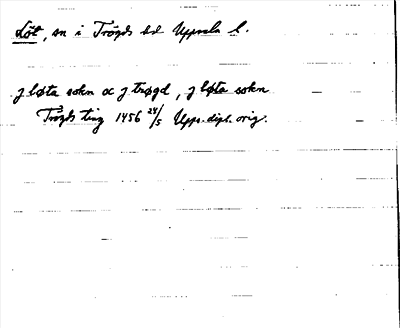 Löt, sn i Trögds hd Uppsala l.
J løta sokn oc J trøgd, J løta sokn
Trögds ting 1456 24/5 Upps. dipl. orig.